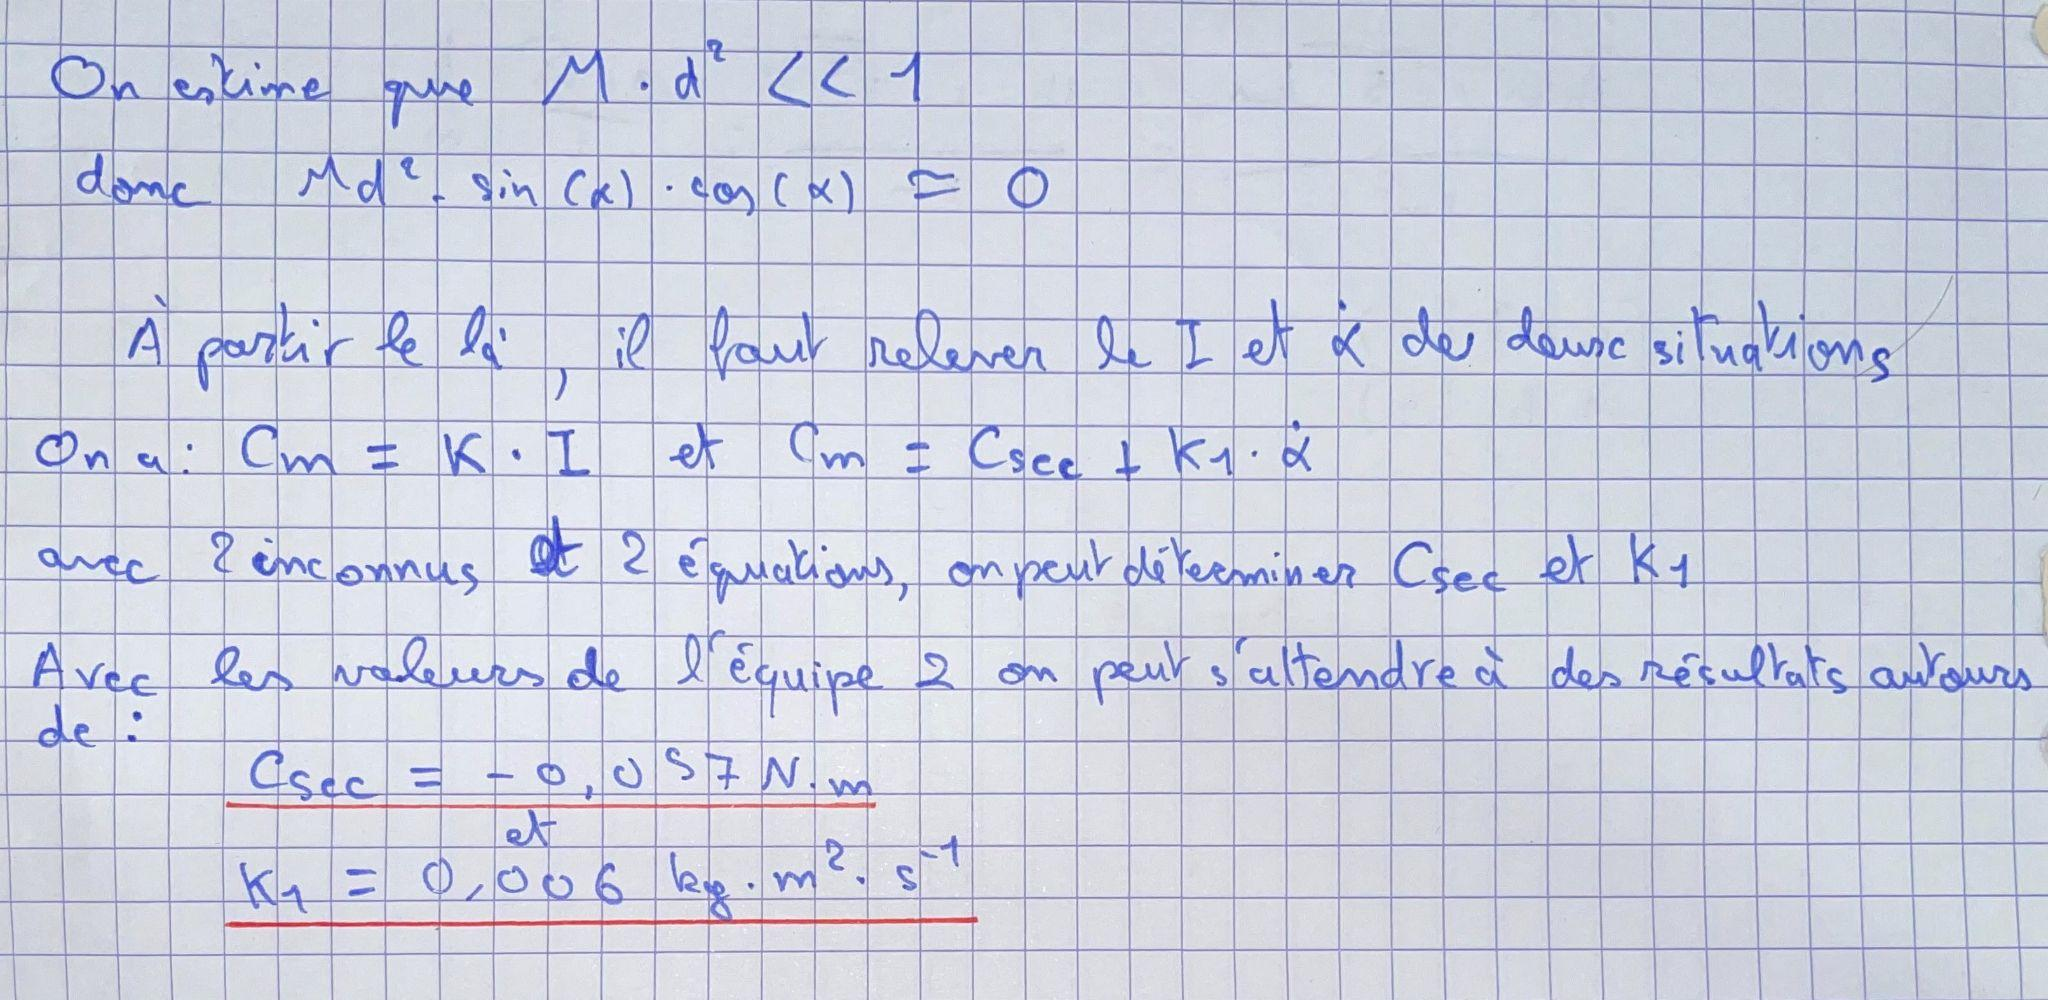 On estime que M . d² << 1
donc Md² . sin(α) . cos(α) ≃ 0
À partir le là, il faut relever le I et α̇ de deux situations
On a : Cm = K . I et Cm = Csec + K1 . α̇
avec 2 inconnus et 2 équations, on peut déterminer Csec et K1
Avec les valeurs de l'équipe 2 on peut s'attendre à des résultats autours
de :
Csec = - 0,057 N.m
et
K1 = 0,006 kg . m² . s⁻¹